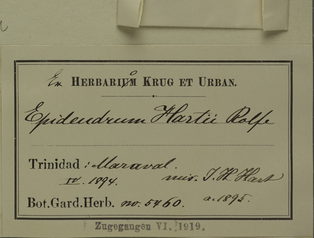 Ex HERBARIO KRUG ET URBAN.
Epidendrum Hartii Rolfe
Trinidad: Maraval.
IV. 1894. mis. J. H. Hart
Bot. Gard. Herb. no. 5460. a. 1895.
Zugegangen VI. 1919.